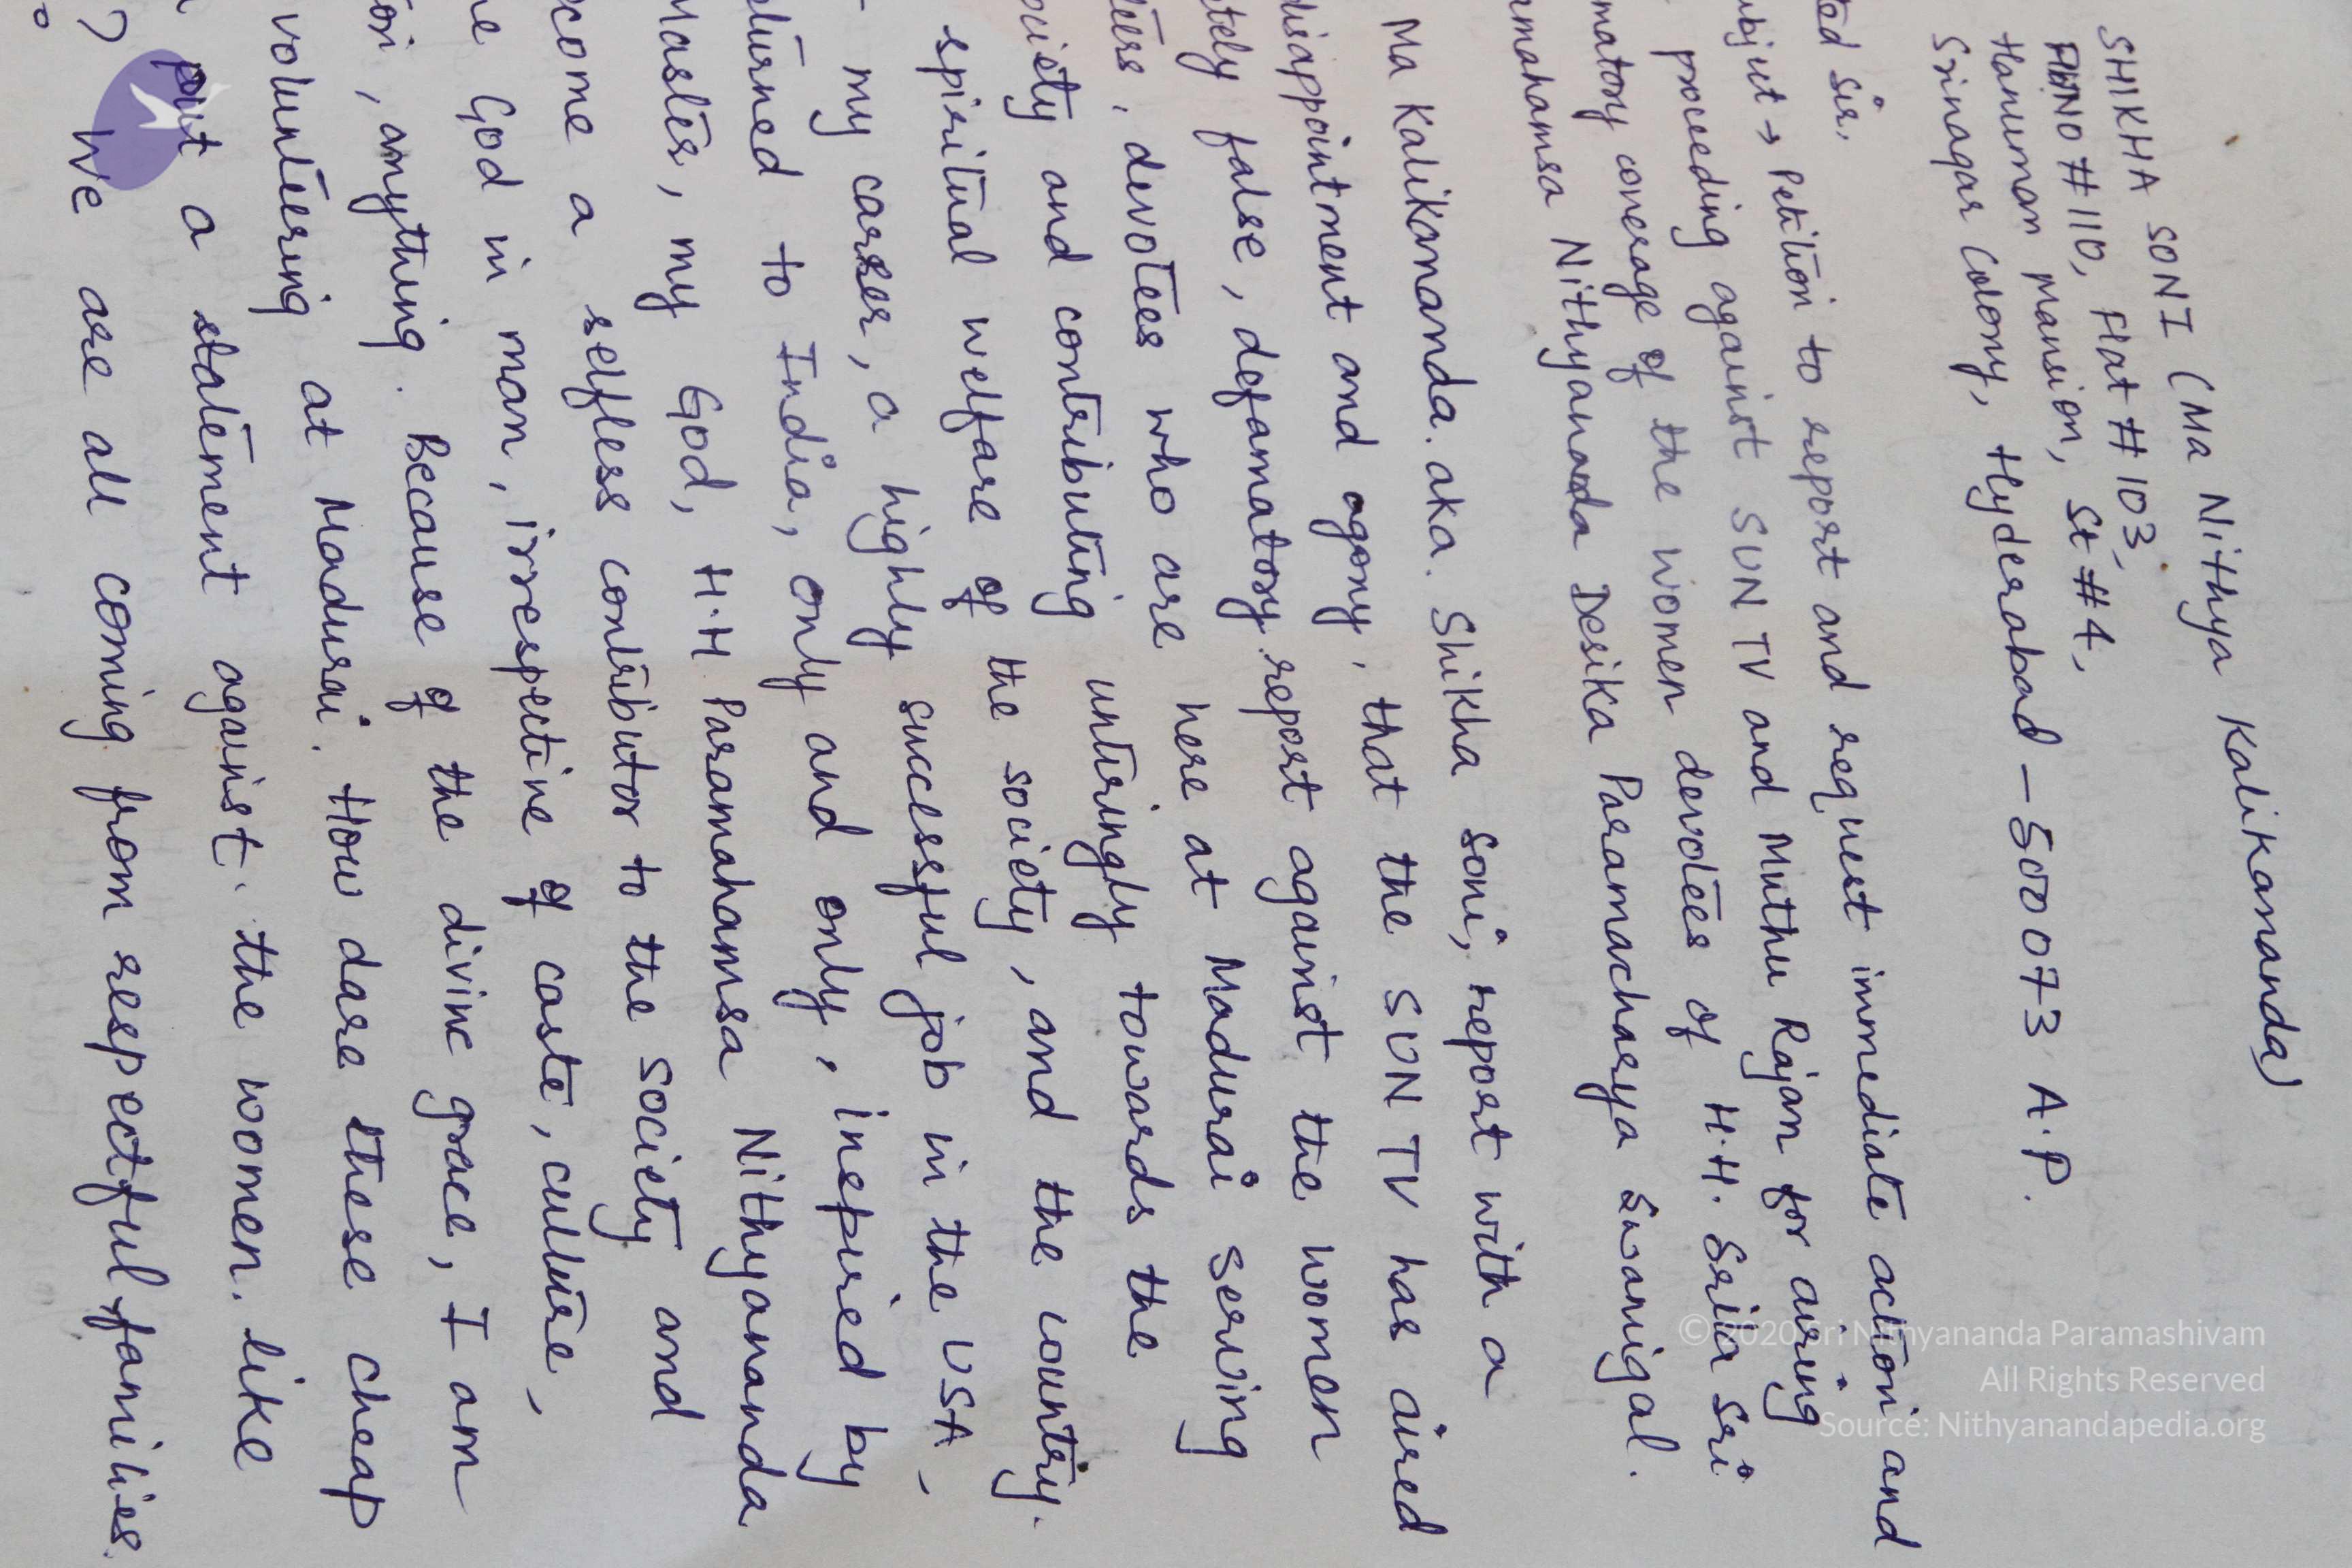 SHIKHA SONI (Ma Nithya Kalikananda)
#110, Flat #103,
Hanuman mansion, St #4,
Srinagar Colony, Hyderabad - 500073 A.P.
ted sir,
bject → Petition to report and request immediate action and
proceeding against SUN TV and Muthu Rajan for airing
matory coverage of the women devotees of H.H. Srila Sri
amahamsa Nithyananda Desika Paramacharya Swamigal.
Ma Kalikananda. aka. Shikha Soni, report with a
disappointment and agony, that the SUN TV has aired
tely false, defamatory report against the women
teers, devotees who are here at Madurai serving
ociety and contributing untiringly towards the
spiritual welfare of the society, and the country.
my career, a highly successful job in the USA,
eturned to India, only and only, inspired by
Master, my God, H.H Paramahamsa Nithyananda
ecome a selfless contributor to the society and
he God in man, irrespective of caste, culture,
on, anything. Because of the divine grace, I am
volunteering at Madurai. How dare these cheap
put a statement against the women. like
? We are all coming from respectful families.
© 2020 Sri Nithyananda Paramashivam
All Rights Reserved
Source: Nithyanandapedia.org